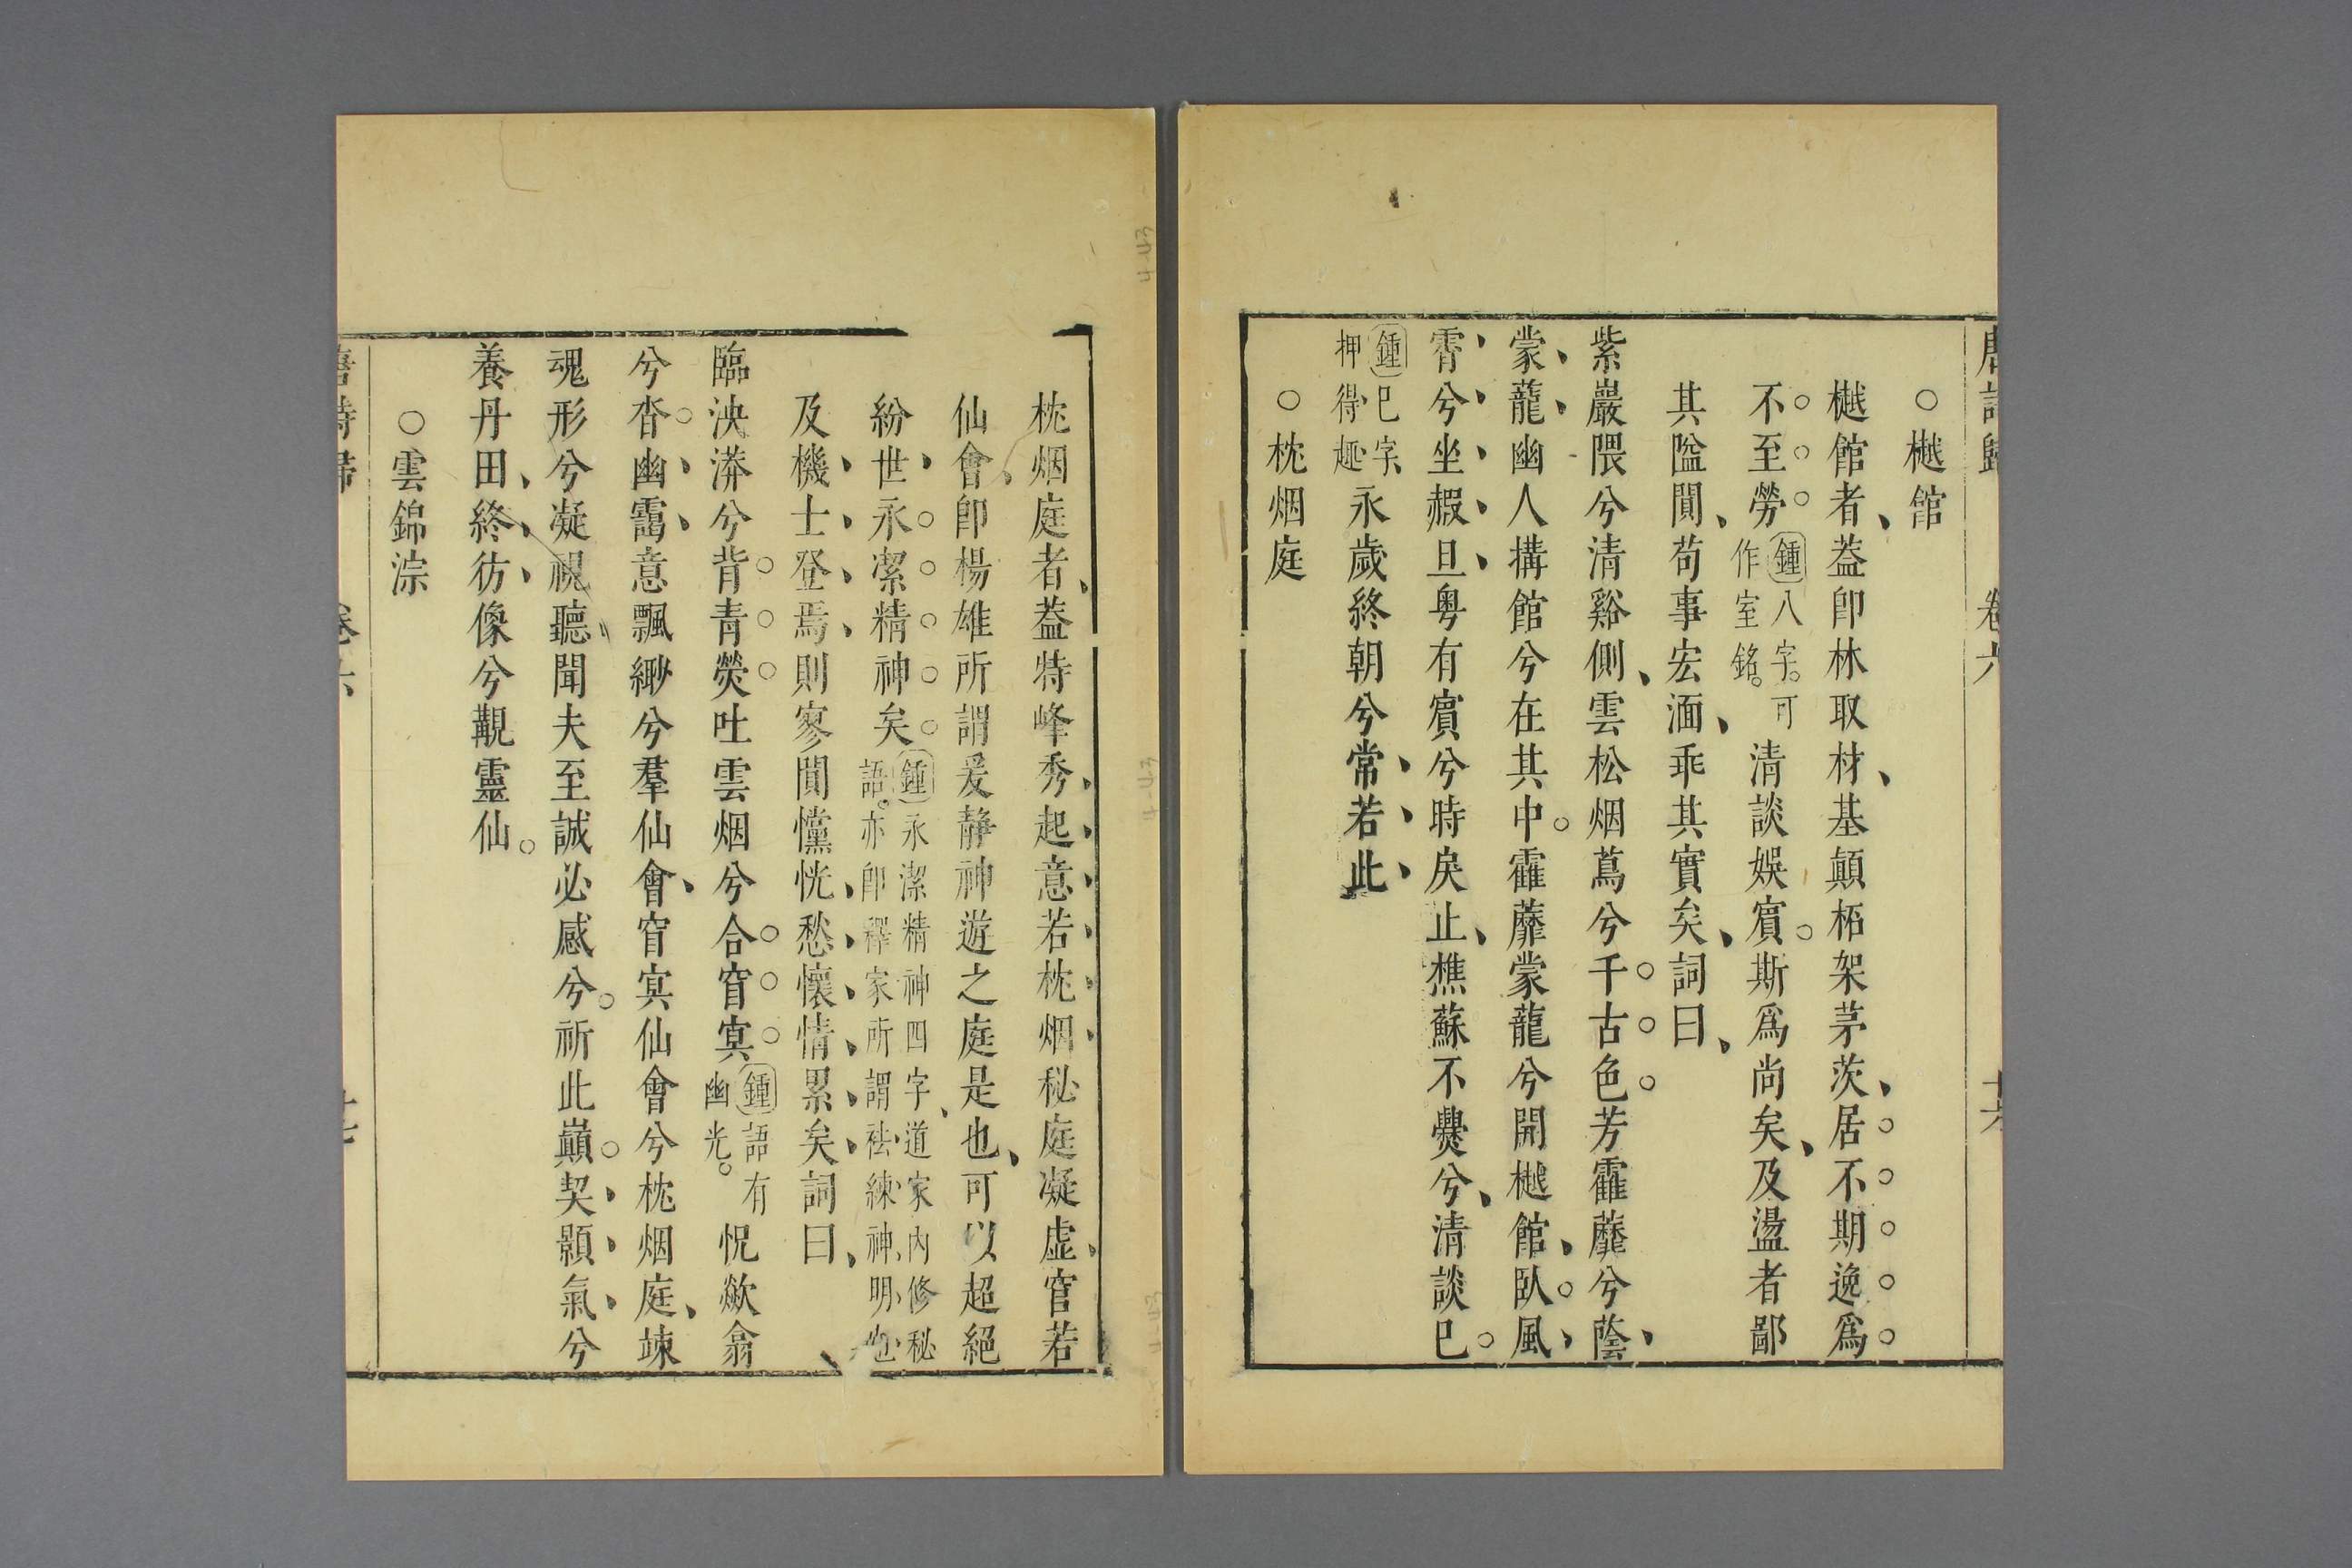 唐詩歸 卷六 十六
○樾館
樾館者、蓋卽林取材、基顛柘架茅茨、居不期逸爲
不至勞鍾八字。可作室銘。清談娛賓。斯爲尚矣、及盪者鄙
其隘閴、苟事宏湎、乖其實矣、詞曰、
紫巖隈兮清谿側、雲松烟蔦兮千古色芳霍蘼兮蔭
蒙蘢幽人搆館兮在其中。霍蘼蒙蘢兮開樾館、臥風
霄兮坐赮旦粵有賓兮時戾止、樵蘇不爨兮、清談已。
鍾已字、押得趣永歲終朝兮常若此
○枕烟庭
枕烟庭者、蓋特峰秀起意若枕烟秘庭凝虛、窅若
仙會、卽楊雄所謂爰静神遊之庭是也、可以超絕
紛世永潔精神矣。鍾永潔精神四字、道家內修秘語。亦卽釋家所謂祛練神明也
及機士登焉則寥閴戃恍愁懷情累矣詞曰、
臨泱漭兮背青熒吐雲烟兮合窅冥鍾語有幽光。怳歘翕
兮沓幽靄意飄緲兮羣仙會、窅冥仙會兮枕烟庭、竦
魂形兮凝視聽聞夫至誠必感兮。祈此巔契顥氣兮
養丹田、終彷像兮觀靈仙。
○雲錦淙
唐詩歸 卷六 十七